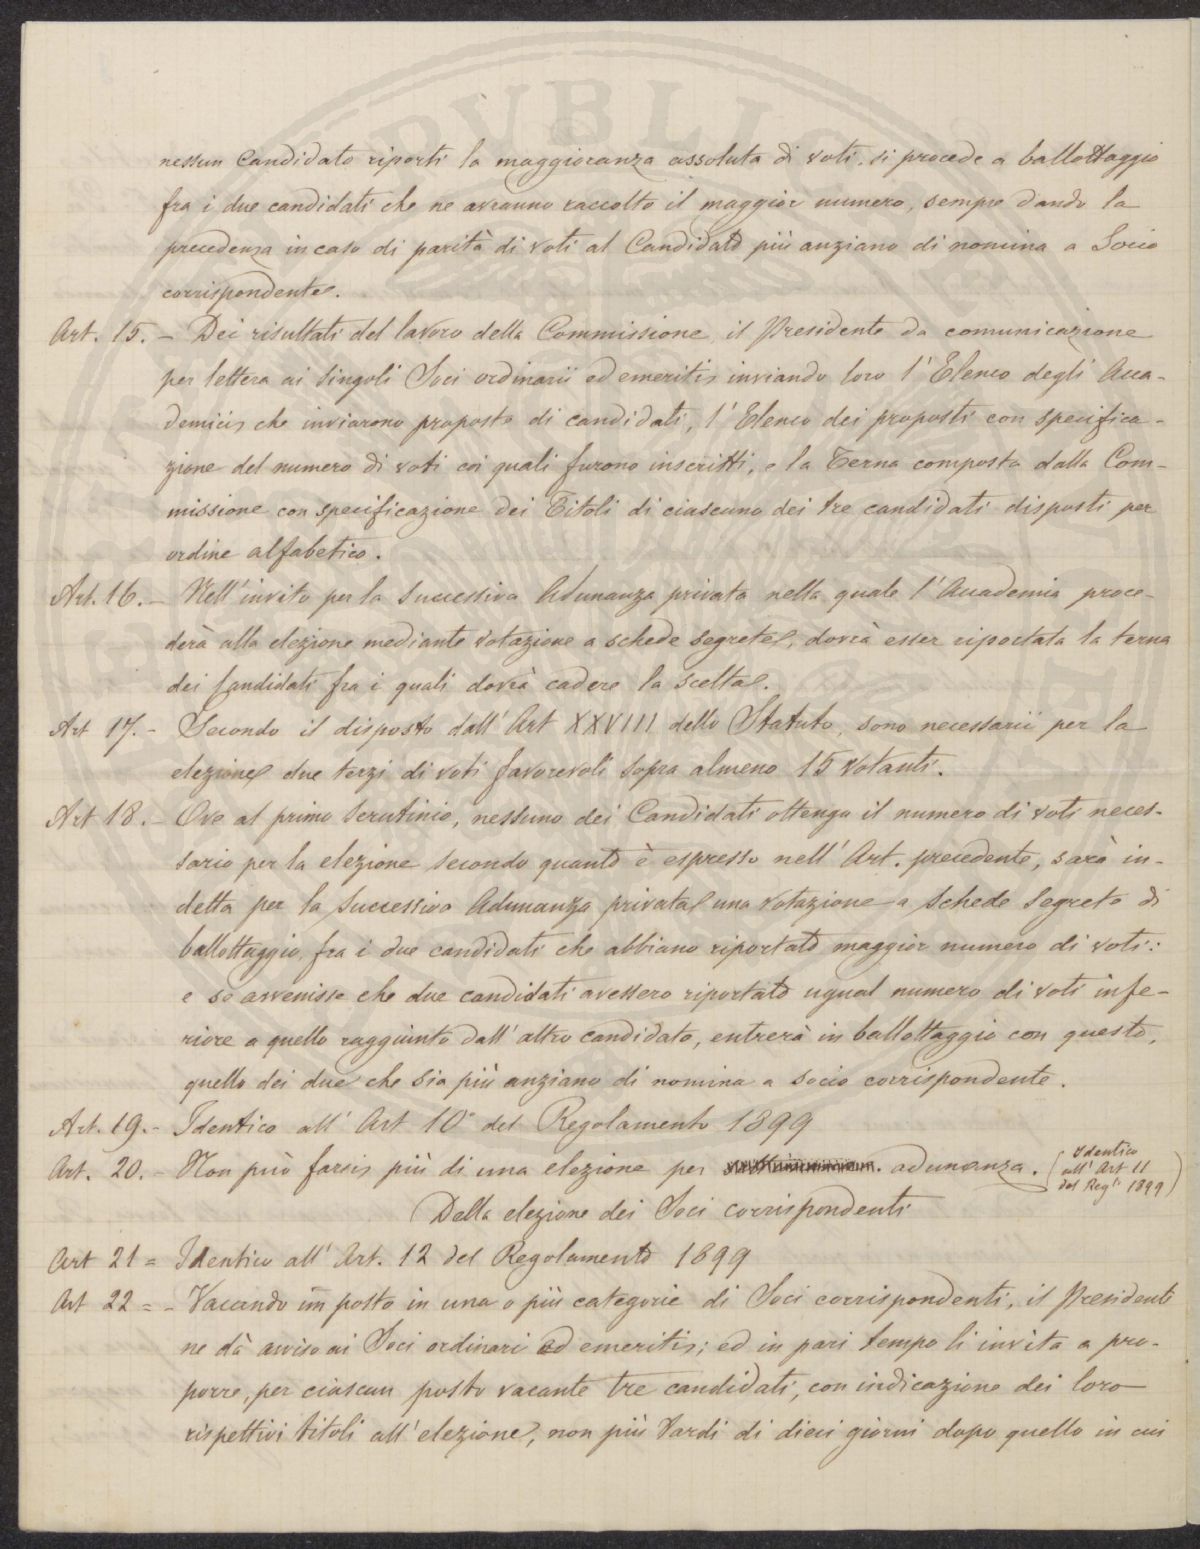 nessun Candidato riporti la maggioranza assoluta di voti, si procede a ballottaggio
fra i due candidati che ne avranno raccolto il maggior numero, sempre dando la
precedenza in caso di parità di voti al Candidato più anziano di nomina a Socio
corrispondente.
Art. 15. - Dei risultati del lavoro della Commissione il Presidente da comunicazione
per lettera ai singoli Soci ordinarii ed emeriti, inviando loro l'Elenco degli Acca-
demici, che inviarono proposte di candidati, l'Elenco dei proposti con specifica-
zione del numero di voti coi quali furono inscritti, e la Terna composta dalla Com-
missione con specificazione dei Titoli di ciascuno dei tre candidati disposti per
ordine alfabetico.
Art. 16. - Nell'invito per la successiva Adunanza privata nella quale l'Accademia proce-
derà alla elezione mediante votazione a schede segrete, dovrà esser riportata la terna
dei Candidati fra i quali dovrà cadere la scelta.
Art 17. - Secondo il disposto dall'Art XXVIII dello Statuto, sono necessarii per la
elezione due terzi di voti favorevoli sopra almeno 15 votanti.
Art 18. - Ove al primo scrutinio, nessuno dei Candidati ottenga il numero di voti neces-
sario per la elezione secondo quanto è espresso nell'Art. precedente, sarà in-
detta per la successiva Adunanza privata una votazione a schede segrete di
ballottaggio, fra i due candidati che abbiano riportato maggior numero di voti:
e se avvenisse che due candidati avessero riportato ugual numero di voti infe-
riore a quello raggiunto dall'altro candidato, entrerà in ballottaggio con questo,
quello dei due che sia più anziano di nomina a socio corrispondente.
Art. 19. - Identico all'Art 10° del Regolamento 1899
Art. 20. - Non può farsi più di una elezione per adunanza. (Identico
all'Art 11
del Reg.to 1899)
Della elezione dei Soci corrispondenti
Art 21 = Identico all'Art. 12 del Regolamento 1899
Art 22 = - Vacando un posto in una o più categorie di Soci corrispondenti, il Presidente
ne dà avviso ai Soci ordinari ed emeriti; ed in pari tempo li invita a pro-
porre, per ciascun posto vacante tre candidati, con indicazione dei loro
rispettivi titoli all'elezione, non più tardi di dieci giorni dopo quello in cui
PVBLIC